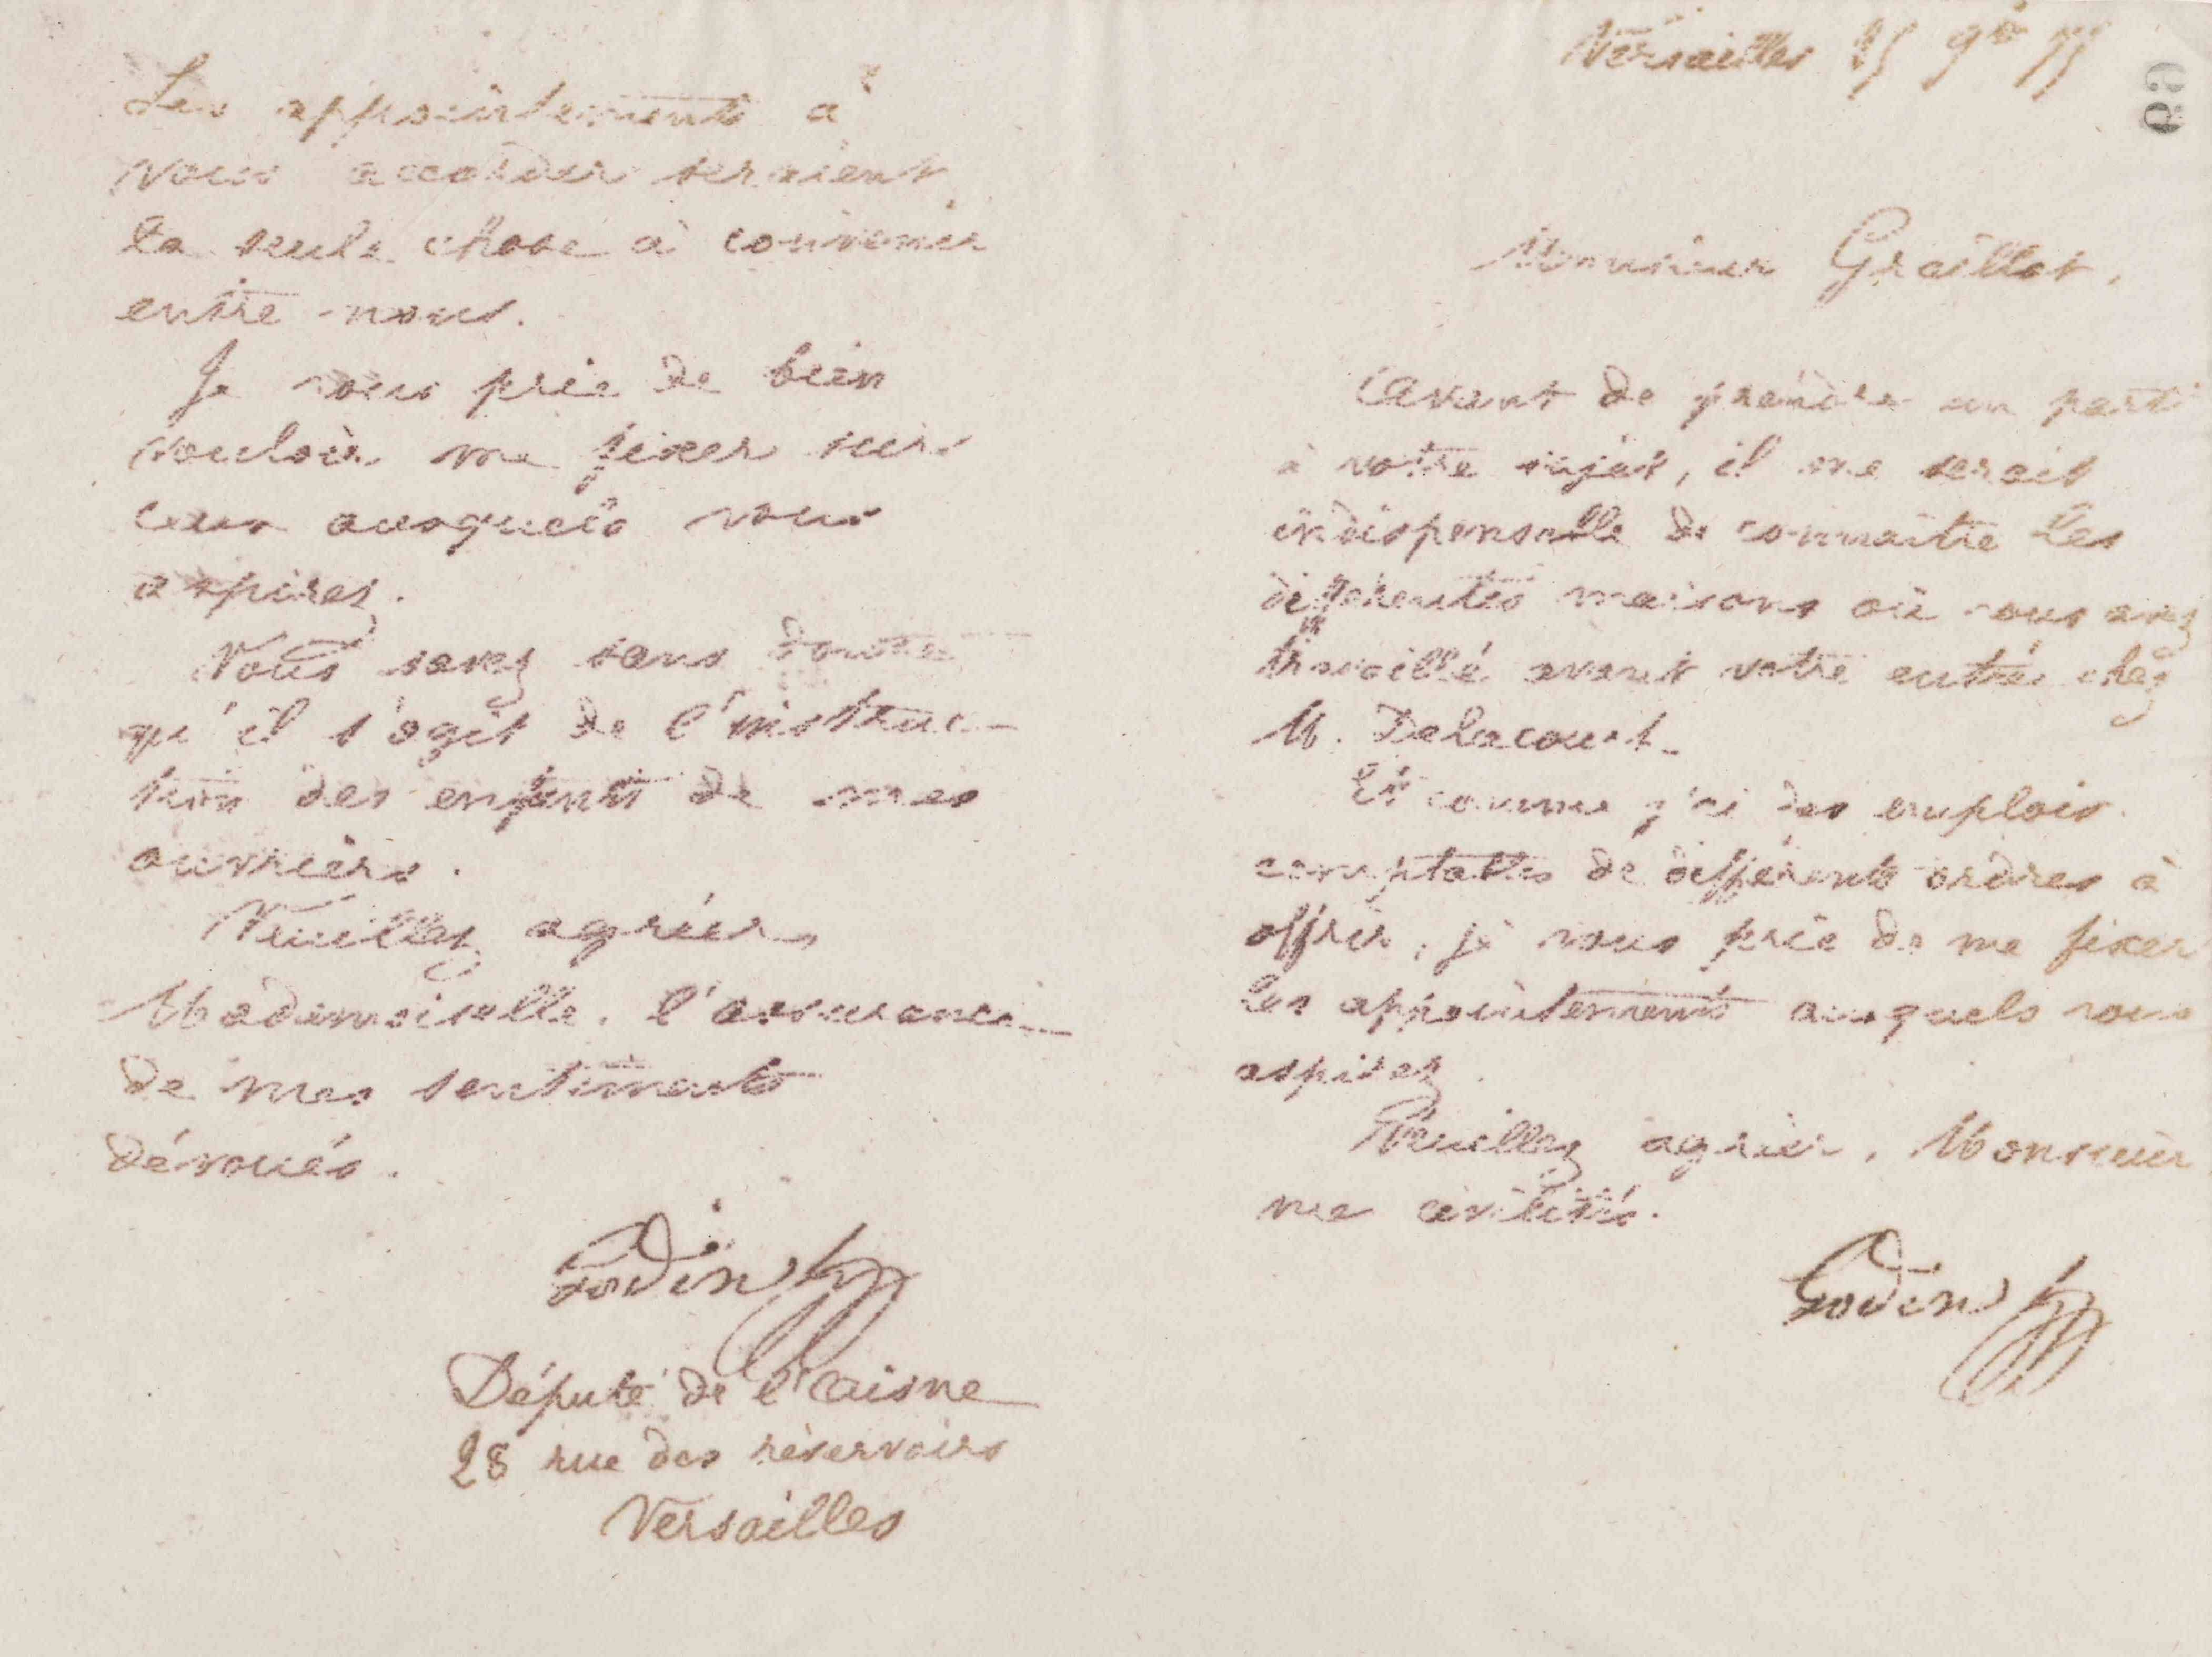 Les appointements à
vous accorder seraient
la seule chose à convenir
entre nous.
Je vous prie de bien
vouloir me fixer sur
ceux auxquels vous
aspirez.
Vous savez sans doute
qu'il s'agit de l'instruc-
tion des enfants de mes
ouvriers.
Veuillez agréer,
Mademoiselle, l'assurance
de mes sentiments
dévoués.
Godin
Député de l'Aisne
28 rue des réservoirs
Versailles
Versailles 9bre 75
69
Monsieur Graillot,
Avant de prendre un parti
à votre sujet, il me serait
indispensable de connaître les
différentes maisons où vous avez
travaillé avant votre entrée chez
M. Delacourt.
Et comme j'ai des emplois
comptables de différents ordres à
offrir, je vous prie de me fixer
les appointements auxquels vous
aspirez.
Veuillez agréer, Monsieur
me civilités.
Godin